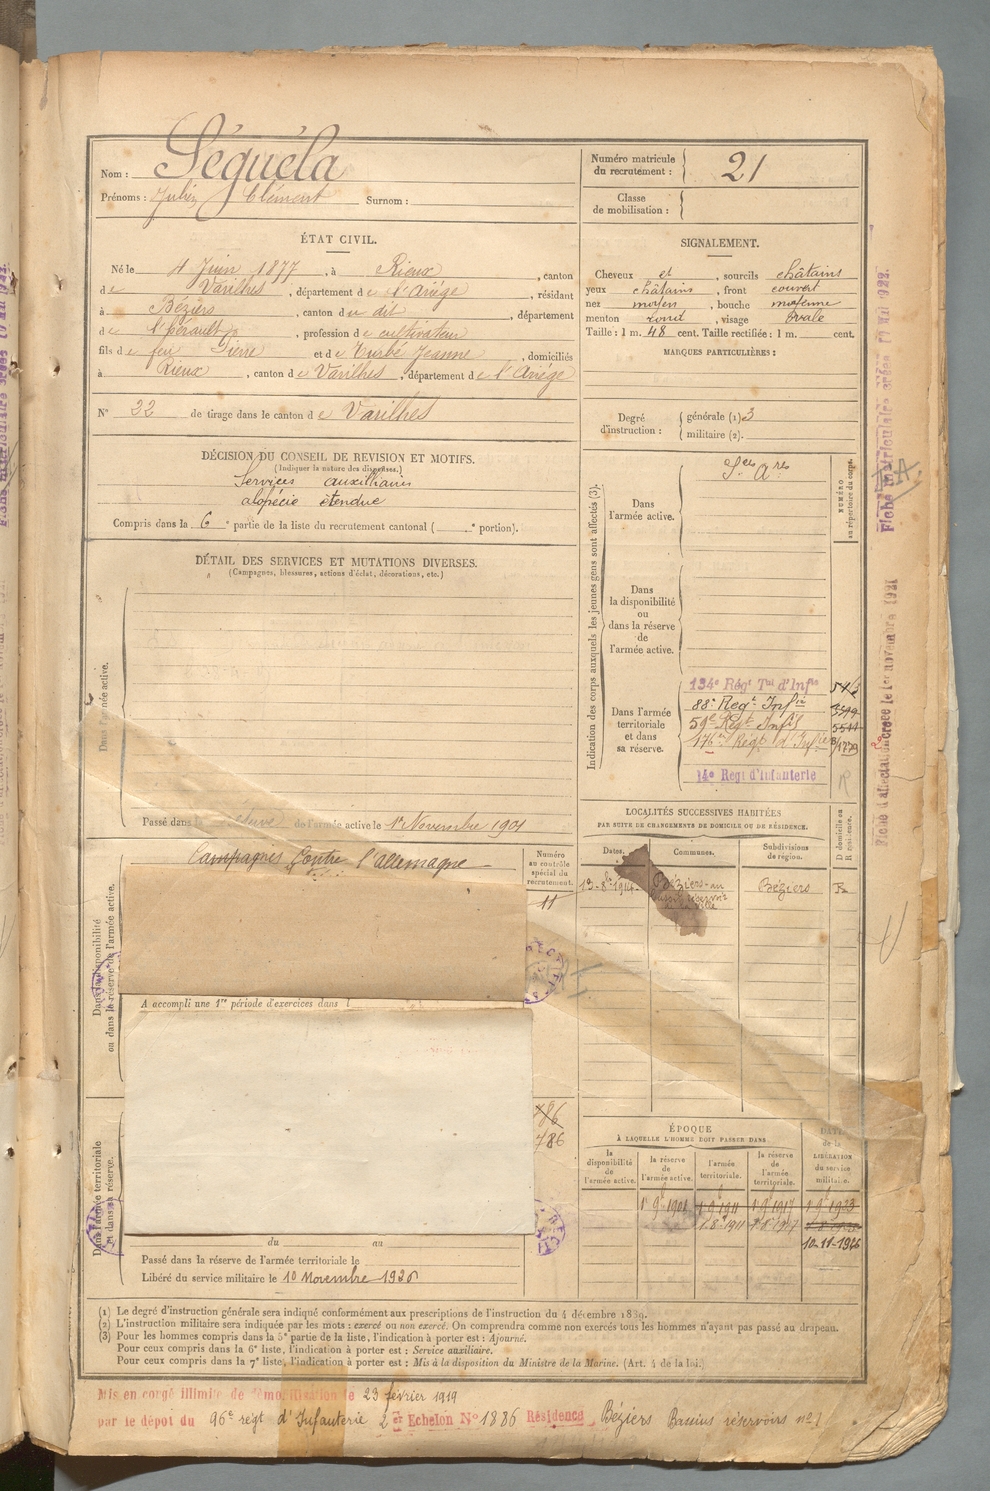 Nom : Séguéla
Prénoms : Julien Clément Surnom :
Numéro matricule du recrutement : 21
Classe de mobilisation :
ÉTAT CIVIL.
Né le 4 Juin 1877, à Rieux, canton
de Varilhes, département de l'Ariège, résidant
à Béziers, canton du dit, département
de l'hérault, profession de cultivateur
fils de feu Pierre et de Turbé Jeanne, domiciliés
à Rieux, canton de Varilhes, département de l'Ariège
N° 22 de tirage dans le canton de Varilhes
SIGNALEMENT.
Cheveux et, sourcils châtains
yeux châtains, front couvert
nez moyen, bouche moyenne
menton rond, visage ovale
Taille : 1 m. 48 cent. Taille rectifiée : 1 m. cent.
MARQUES PARTICULIÈRES :
Degré d'instruction : générale (1) 3
militaire (2).
DÉCISION DU CONSEIL DE REVISION ET MOTIFS.
(Indiquer la nature des dispenses.)
Services auxiliaires
alopécie étendue
Compris dans la 6e partie de la liste du recrutement cantonal ( e portion).
DÉTAIL DES SERVICES ET MUTATIONS DIVERSES.
(Campagnes, blessures, actions d'éclat, décorations, etc.)
Dans l'armée active.
Passé dans la réserve de l'armée active le 1er Novembre 1901
Indication des corps auxquels les jeunes gens sont affectés (3).
NUMÉRO au répertoire du corps.
Dans l'armée active.
Ses Ares
Dans la disponibilité ou dans la réserve de l'armée active.
Dans l'armée territoriale et dans sa réserve.
134e Régt Tal d'Infie
88e Regt Infie
59e Regt Infie
176e Régt d'Infie
14e Regt d'Infanterie
Dans la disponibilité ou dans la réserve de l'armée active.
Campagnes Contre l'allemagne
Numéro au contrôle spécial du recrutement.
11
A accompli une 1re période d'exercices dans l
LOCALITÉS SUCCESSIVES HABITÉES
PAR SUITE DE CHANGEMENTS DE DOMICILE OU DE RÉSIDENCE.
Dates. Communes. Subdivisions de région. D domicile ou R résidence.
Béziers Béziers R
Dans l'armée territoriale et dans sa réserve.
786
786
du au
Passé dans la réserve de l'armée territoriale le
Libéré du service militaire le 10 Novembre 1926
ÉPOQUE
À LAQUELLE L'HOMME DOIT PASSER DANS
la disponibilité de l'armée active.
la réserve de l'armée active.
l'armée territoriale.
la réserve de l'armée territoriale.
DATE de la LIBÉRATION du service militaire.
10-11-1926
(1) Le degré d'instruction générale sera indiqué conformément aux prescriptions de l'instruction du 4 décembre 1889.
(2) L'instruction militaire sera indiquée par les mots : exercé ou non exercé. On comprendra comme non exercés tous les hommes n'ayant pas passé au drapeau.
(3) Pour les hommes compris dans la 5e partie de la liste, l'indication à porter est : Ajourné.
Pour ceux compris dans la 6e liste, l'indication à porter est : Service auxiliaire.
Pour ceux compris dans la 7e liste, l'indication à porter est : Mis à la disposition du Ministre de la Marine. (Art. 4 de la loi.)
Mis en congé illimité de démobilisation le 23 février 1919
par le dépot du 96e régt d'Infanterie 2 er Echelon N° 1886 Résidence Béziers Bassins réservoirs n° 1
Fiche matricule
Fiche d'affectation créée le 1er novembre 1921